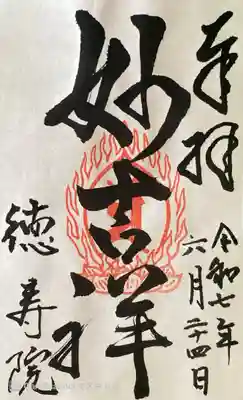 奉拝
令和七年
六月二十四日
妙吉祥
徳寿院